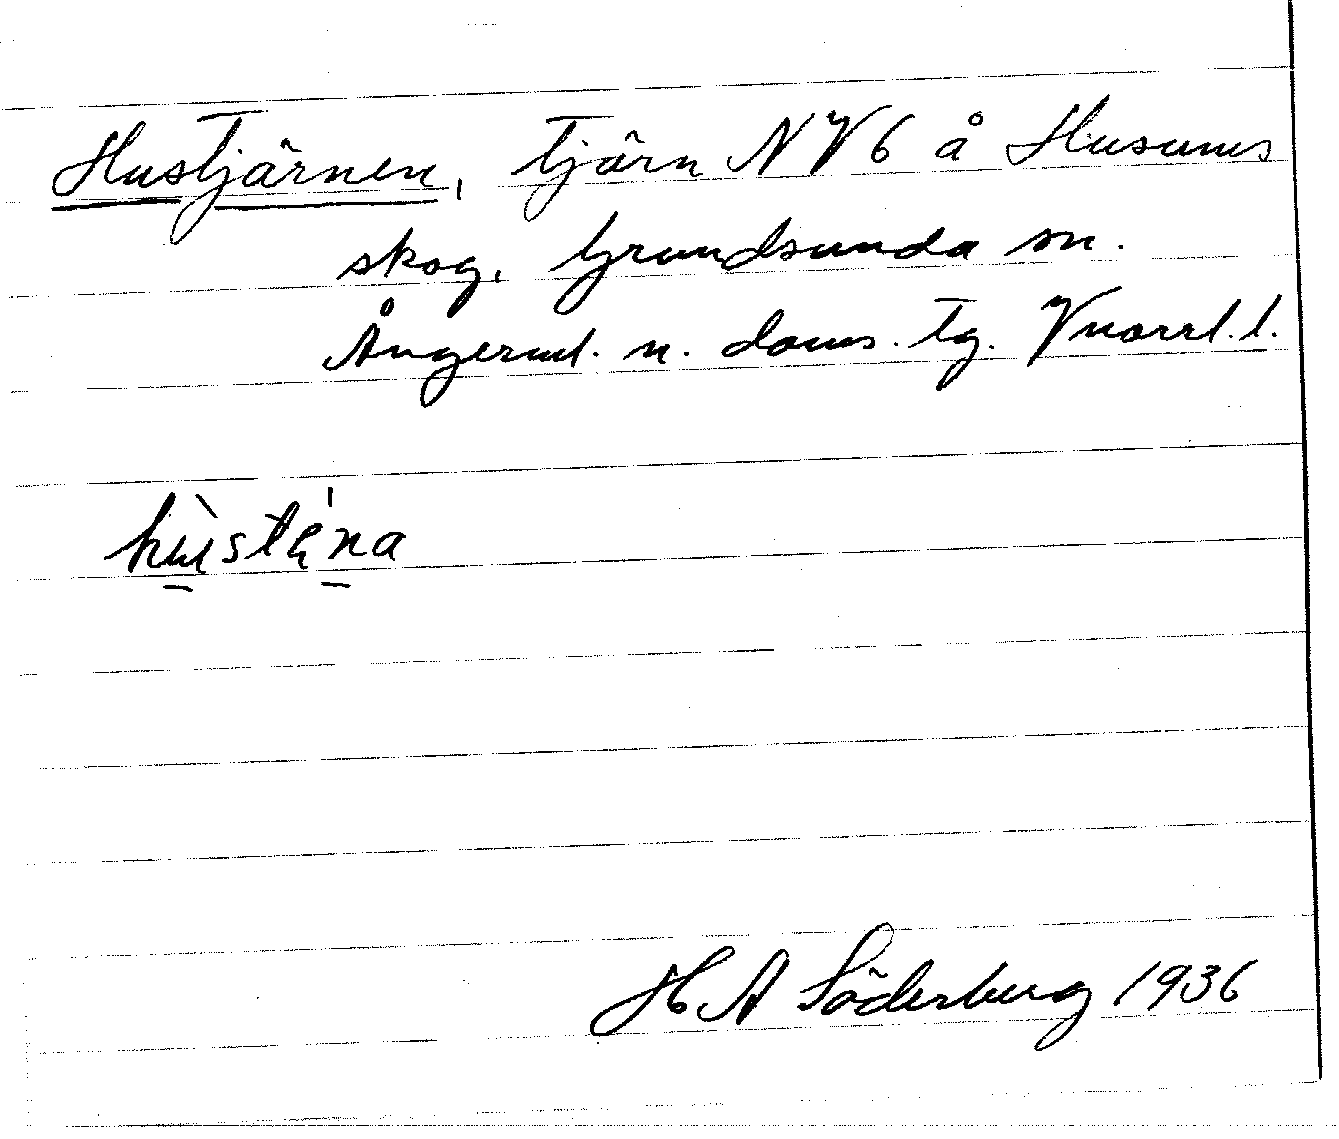 Hustjärnen, tjärn NV6 å Husums
skog, Grundsunda sn.
Ångerml. n. doms. tg. Vnorrl. l.
hùstä́na
H A Söderberg 1936